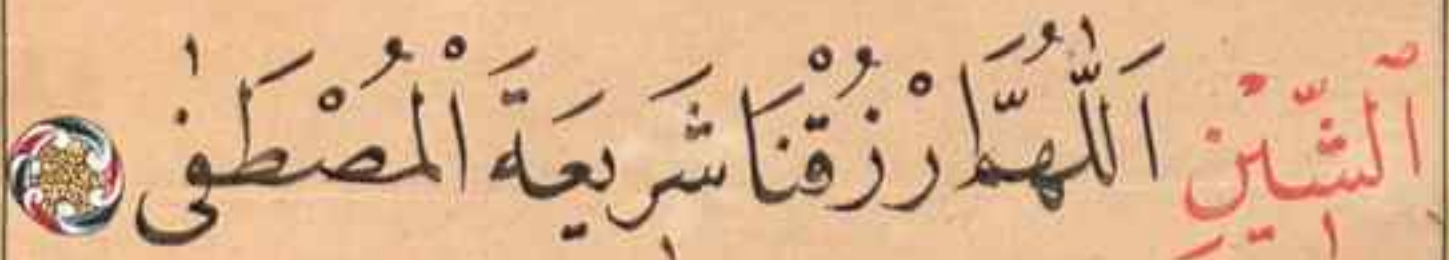 اَلشِّيْنِ اَللّٰهُمَّ ارْزُقْنَا شَرِيعَةَ الْمُصْطَفٰى